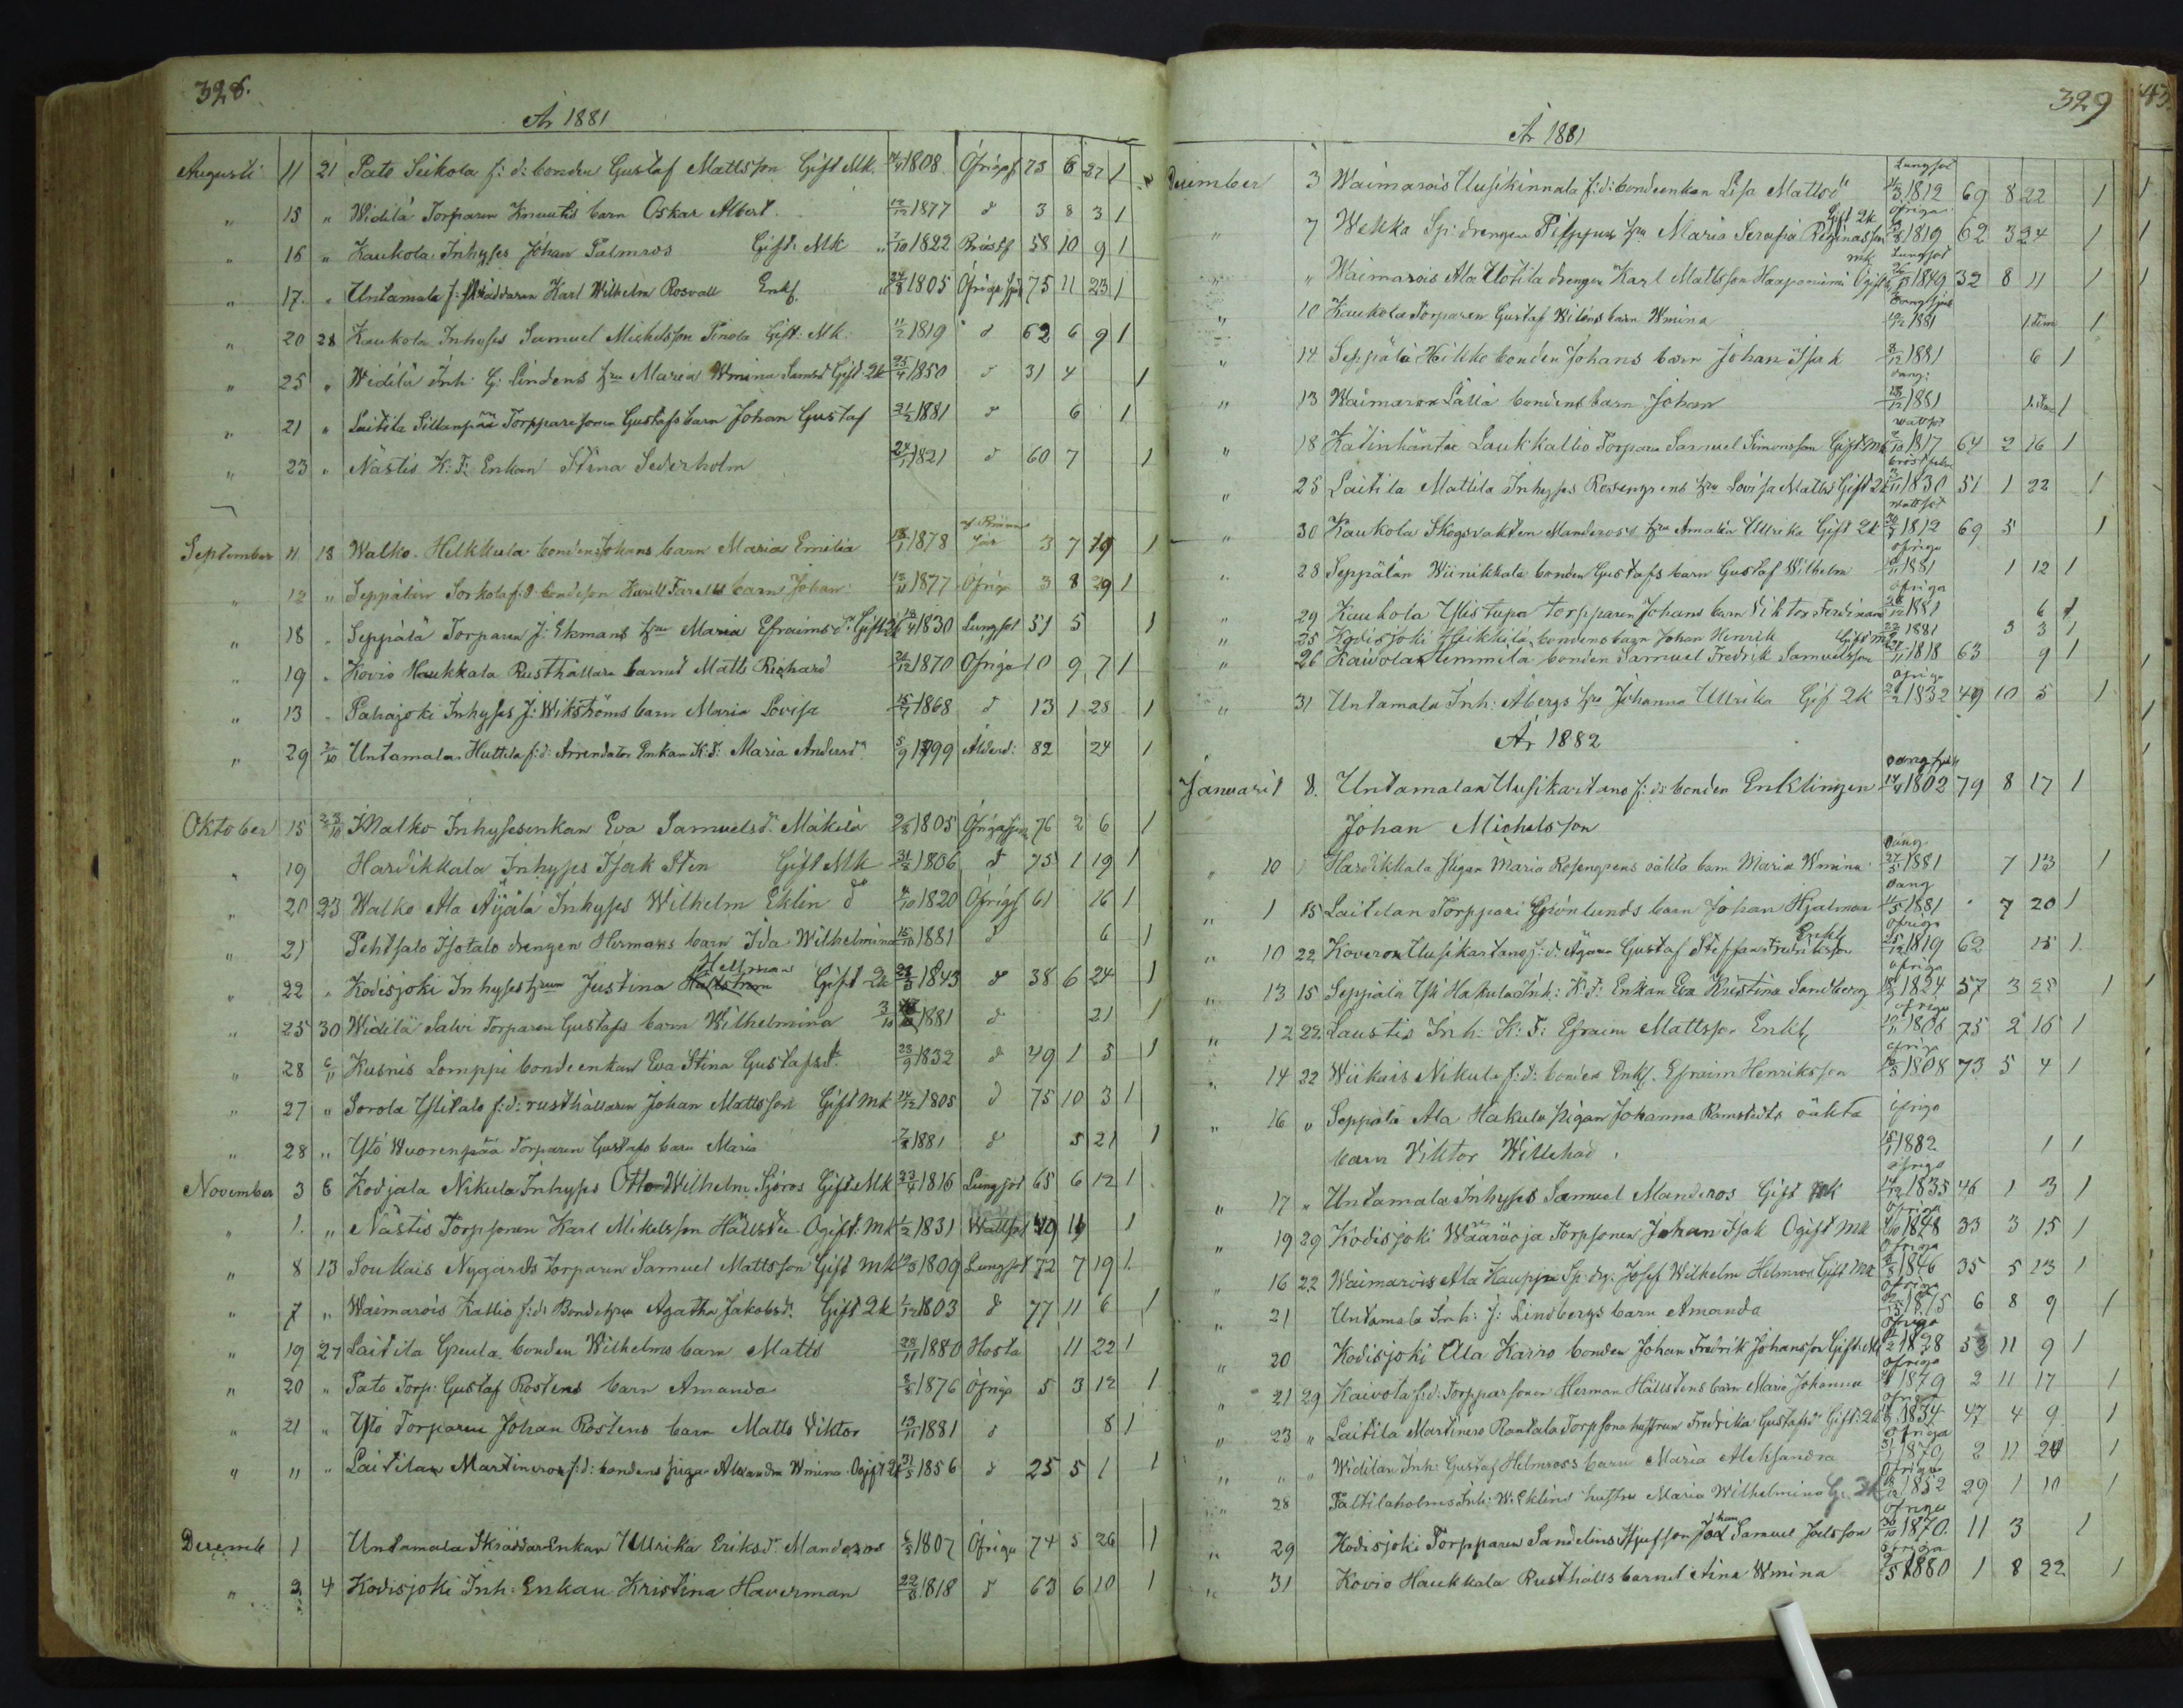 328.
År 1881
Augusti 11 21 Pato Seikola f: d: bonden Gustaf Mattsson Gift Mk. 1808 Öfrigs 73 6 27 1
" 15 " Widilä Torparen Knuutis barn Oskar Albert 13/12 1877 d 3 8 3 1
" 16 " Kaukola Inhyses Johan Palmros Gift Mk 7/10 1822 Bröstf 58 10 9 1
" 17 " Untamala f: skräddaren Karl Wilhelm Rosvall Enkl. 24/8 1805 Öfriga sju 75 11 23 1
" 20 28 Kaukola Inhyses Samuel Michelsson Pinola Gift Mk 11/2 1819 d 62 6 9 1
" 25 " Widilä Inh: G: Lindens hru Maria Wmina Samsd Gift 2k 25/4 1850 d 31 4 1
" 21 " Laitila Sillanpää Torpparesonen Gustafs barn Johan Gustaf 21/2 1881 d 6 1
" 23 " Nästis K: F: Enkan Stina Sederholm 24/1 1821 d 60 7 1
September 11 18 Walko Hilkkula bonden Johans barn Maria Emilia 1878 3 7 19 1
" 12 " Seppälän Sorkola f. d. bondeson Karell Farells barn Johan 13/11 1877 Öfriga 3 8 29 1
" 18 " Seppälä Torparen J: Ekmans hru Maria Efraimsdr. Gift 2k 18/4 1830 Lungsot 51 5 1
" 19 " Kovio Haukkala Rusthållare barnet Matts Richard 12/12 1870 Öfriga 10 9 7 1
" 13 " Pahajoki Inhyses J: Wikströms barn Maria Lovisa 15/7 1868 d 13 1 28 1
" 29 2/10 Untamala Huttila f: d: Arrendator Enkan K: F: Maria Andersdr 5/9 1799 Ålderd: 82 24 1
Oktober 15 23/10 Walko Inhysesenkan Eva Samuelsdr. Mäkilä 9/8 1805 Öfriga sju 76 2 6 1
" 19 Hardikkala Inhyses Isak Sten Gift Mk 31/8 1806 d 75 1 19 1
" 20 23 Walko Ala Äijälä Inhyses Wilhelm Eklin d 4/10 1820 Öfrigs 61 16 1
" 21 Pehtsalo Isotalo drengen Hermans barn Ida Wilhelmina 15/10 1881 d 6 1
" 22 " Kodisjoki Inhyses hrun Justina Hellman Gift 2k 28/3 1843 d 38 6 24 1
" 25 30 Widilä Salvi Torparen Gustafs barn Wilhelmina 3/10 1881 d 21 1
" 28 6/11 Kusnis Lomppi bondeenkan Eva Stina Gustafsdr. 23/9 1832 d 49 1 5 1
" 27 " Sorola Ylitalo f: d: rusthållaren Johan Mattsson Gift Mk 14/12 1805 d 75 10 3 1
" 28 " Yltö Wuorenpää Torparen Gustafs barn Maria 7/5 1881 d 5 21 1
November 3 6 Kodjala Nikula Inhyses Otto Wilhelm Sjöros Gift Mk 23/4 1816 Lungsot 65 6 12 1
" 1. " Nästis Torpsonen Karl Mikelsson Hällsten Ogift Mk 1/2 1831 Wattsot 49 11 1
" 8 13 Soukais Nygårds Torparen Samuel Mattsson Gift Mk 19/3 1809 Lungsot 72 7 19 1
" 7 " Waimarois Kallio f: d: Bondehru Agatha Jakobsdr. Gift 2k 1/12 1803 d 77 11 6 1
" 19 27 Laitila Greula bonden Wilhelms barn Matts 28/11 1880 Hosta 11 22 1
" 20 " Pato Torp: Gustaf Rostens barn Amanda 8/8 1876 Öfriga 5 3 12 1
" 21 " Yltö Torparen Johan Rostens barn Matts Viktor 13/11 1881 d 8 1
" 11 " Laitilan Martineros f: d: bondens piga Alexandra Wmina Ogift 2k 31/5 1856 d 25 5 1 1
Decemb 1 Untamala Skräddar Enkan Ullrika Eriksdr. Manderos 6/5 1807 Öfriga 74 5 26 1
" 2 4 Kodisjoki Inh: Enkan Kristina Haverman 22/5 1818 d 63 6 10 1
329
År 1881
Lungsot
December 3 Waimarois Uusikinnala f: d: bondeenkan Lisa Mattsdr 11/3 1812 69 8 22 1
Öfriga
" 7 Wekka Sp: drengen Filppus hru Maria Serafia Reginasson Gift 2k 1819 62 3 24 1
Lungsot
" " Waimarois Ala Uotila drengen Karl Mattsson Haaponiemi Ogift mk 1849 32 8 11 1
" 10 Kaukola Torparen Gustaf Wilens barn Wmina 10/12 1881 1. tim 1
" 14 Seppälä Heikko bonden Johans barn Johan Isak 8/12 1881 6 1
" 13 Waimaron Lälla bondens barn Johan 13/12 1881 1
Wattsot
" 18 Katinhäntä Laukkallio Torparen Samuel Simonsson Gift Mk 2/10 1817 64 2 16 1
" 25 Laitila Mattila Inhyses Rosengrens hru Lovisa Mattsd Gift 2k 3/11 1830 51 1 22 1
Wattsot
" 30 Kaukola Skogsvakten Manderoos hru Amalia Ullrika Gift 2k 30/7 1812 69 5 1
öfriga
" 28 Seppälän Wiinikkala bonden Gustafs barn Gustaf Wilhelm 16/11 1881 1 12 1
öfriga
" 29 Kaukola Ylistupa torpparen Johans barn Viktor Ferdinand 23/12 1881 6 1
" 25 Kodisjoki Heikkilä bondens barn Johan Henrik 22/9 1881 3 3 1
" 26 Kaivolan Hemmilä bonden Samuel Fredrik Samuelsson Gift Mk 1818 63 9 1
öfriga
" 31 Untamala Inh: Åbergs hru Johanna Ullrika Gif 2k 26/2 1832 49 10 5 1
År 1882
Januarii 8. Untamalan Uusikartano f: d: bonden Enklingen 14/4 1802 79 8 17 1
Johan Michelsson
" 10 Hardikkala pigan Maria Rosengrens oäkta barn Maria Wmina 27/5 1881 7 13 1
" 1 15 Laitilan Torppari Grönlunds barn Johan Hjalmar 11/5 1881 7 20 1
öfriga
" 10 22 Koveron Uusikartano f: d: Ägaren Gustaf Steffan Fredriksson Enkl 25/12 1819 62 15 1
öfriga
" 13 15 Seppälä Yli Hakula Inh: K: F: Enkan Eva Kristina Sandberg 18/9 1824 57 3 25 1
öfriga
" 12 22 Laustis Inh: K: F: Efraim Mattsson Enkl 1806 75 2 16 1
öfriga
" 14 22 Wiikais Nikula f: d: bonden Enkl. Efraim Henriksson 1808 73 5 4 1
öfriga
" 16 " Seppälä Ala Hakula Pigan Johanna Ramstedts oäkta
barn Viktor Willehad. 15/1 1882 1 1
öfriga
" 17 " Untamala Inhyses Samuel Manderos Gift Mk 14/12 1835 46 1 3 1
öfriga
" 19 29 Kodisjoki Wääräoja Torpsonen Johan Isak Ogift Mk 4/10 1848 33 3 15 1
öfriga
" 16 22 Waimarois Ala Kauppi Sp: drg: Josef Wilhelm Helmros Gift Mk 1846 35 5 13 1
öfriga
" 21 Untamala Inh: J: Lindbergs barn Amanda 12/5 1875 6 8 9 1
öfriga
" 20 Kodisjoki Ala Karro bonden Johan Fredrik Johansson Gift Mk 11/2 1828 53 11 9 1
öfriga
" 21 29 Kaivola f: d: Torpparsonen Herman Hällstens barn Maria Johanna 1879 2 11 17 1
öfriga
" 23 " Laitila Martinero Rantala Torpsons hustrun Fredrika Gustafsdr Gift 2k 1834 47 4 9 1
öfriga
" " " Widilän Inh: Gustaf Helmross barn Maria Aleksandra 31/1 1879 2 11 24 1
öfriga
" 28 Paltilaholms Inh: W: Eklins hustru Maria Wilhelmina G. 2k 1852 29 1 10 1
öfriga
" 29 Kodisjoki Torpparen Sandelins Styfson Johan Samuel Joelsson 30/10 1870 11 3 1
öfriga
" 31 Kovio Haukkala Rusthålls barnet Stina Wmina 9/5 1880 1 8 22 1